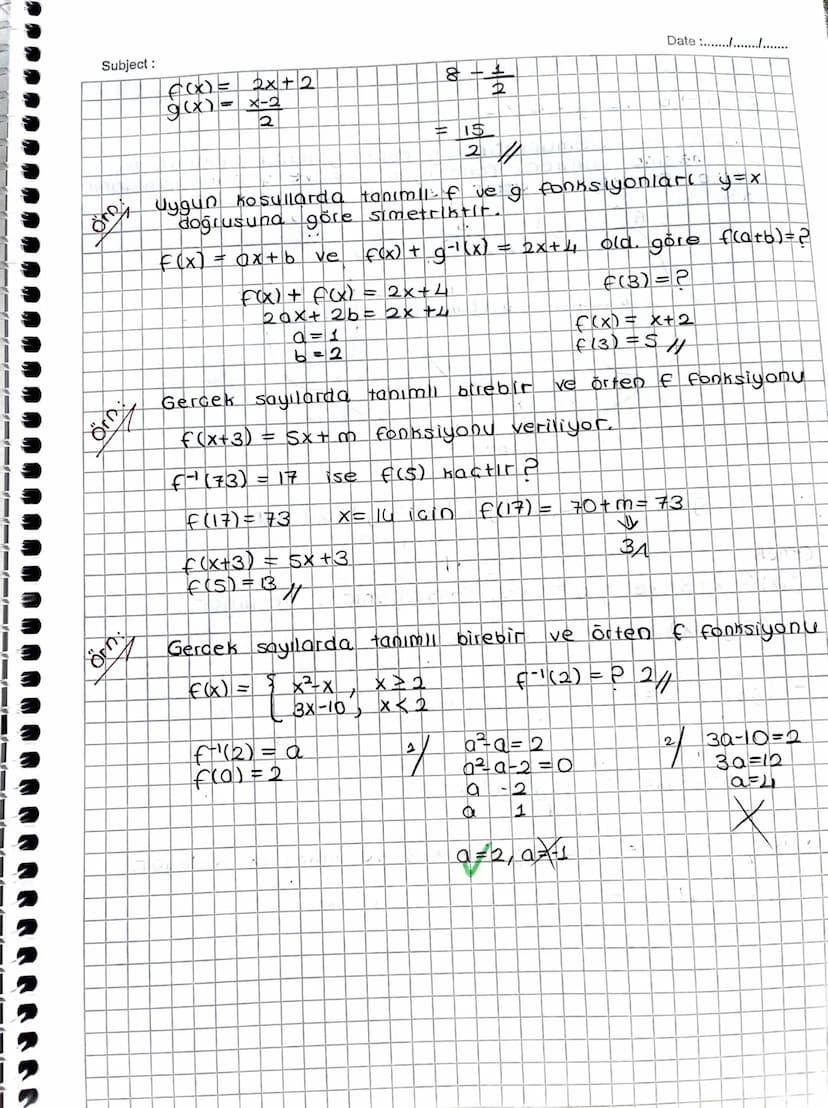 Date :......./......./.......
Subject :
f(x) = 2x+2
g(x) = x-2/2
8 - 1/2
= 15/2 //
Örn: Uygun koşullarda tanımlı f ve g fonksiyonları y=x
doğrusuna göre simetriktir.
f(x) = ax+b ve f(x) + g⁻¹(x) = 2x+4 old. göre f(a+b)=?
f(x) + f(x) = 2x+4
2ax + 2b = 2x+4
a=1
b=2
f(3)=?
f(x) = x+2
f(3) = 5 //
Örn: Gerçek sayılarda tanımlı birebir ve örten f fonksiyonu
f(x+3) = 5x+m fonksiyonu veriliyor.
f⁻¹(73) = 17 ise f(5) kaçtır?
f(17) = 73 x=14 için f(17) = 70+m=73
⇓
3
f(x+3) = 5x+3
f(5)=13 //
Örn: Gerçek sayılarda tanımlı birebir ve örten f fonksiyonu
f(x) = { x²-x , x≥2
3x-10 , x<2
f⁻¹(2) = ? 2 //
f⁻¹(2) = a
f(a) = 2
1/ a²-a=2
a²-a-2=0
a -2
a 1
a=2, a=-1
2/ 3a-10=2
3a=12
a=4
X